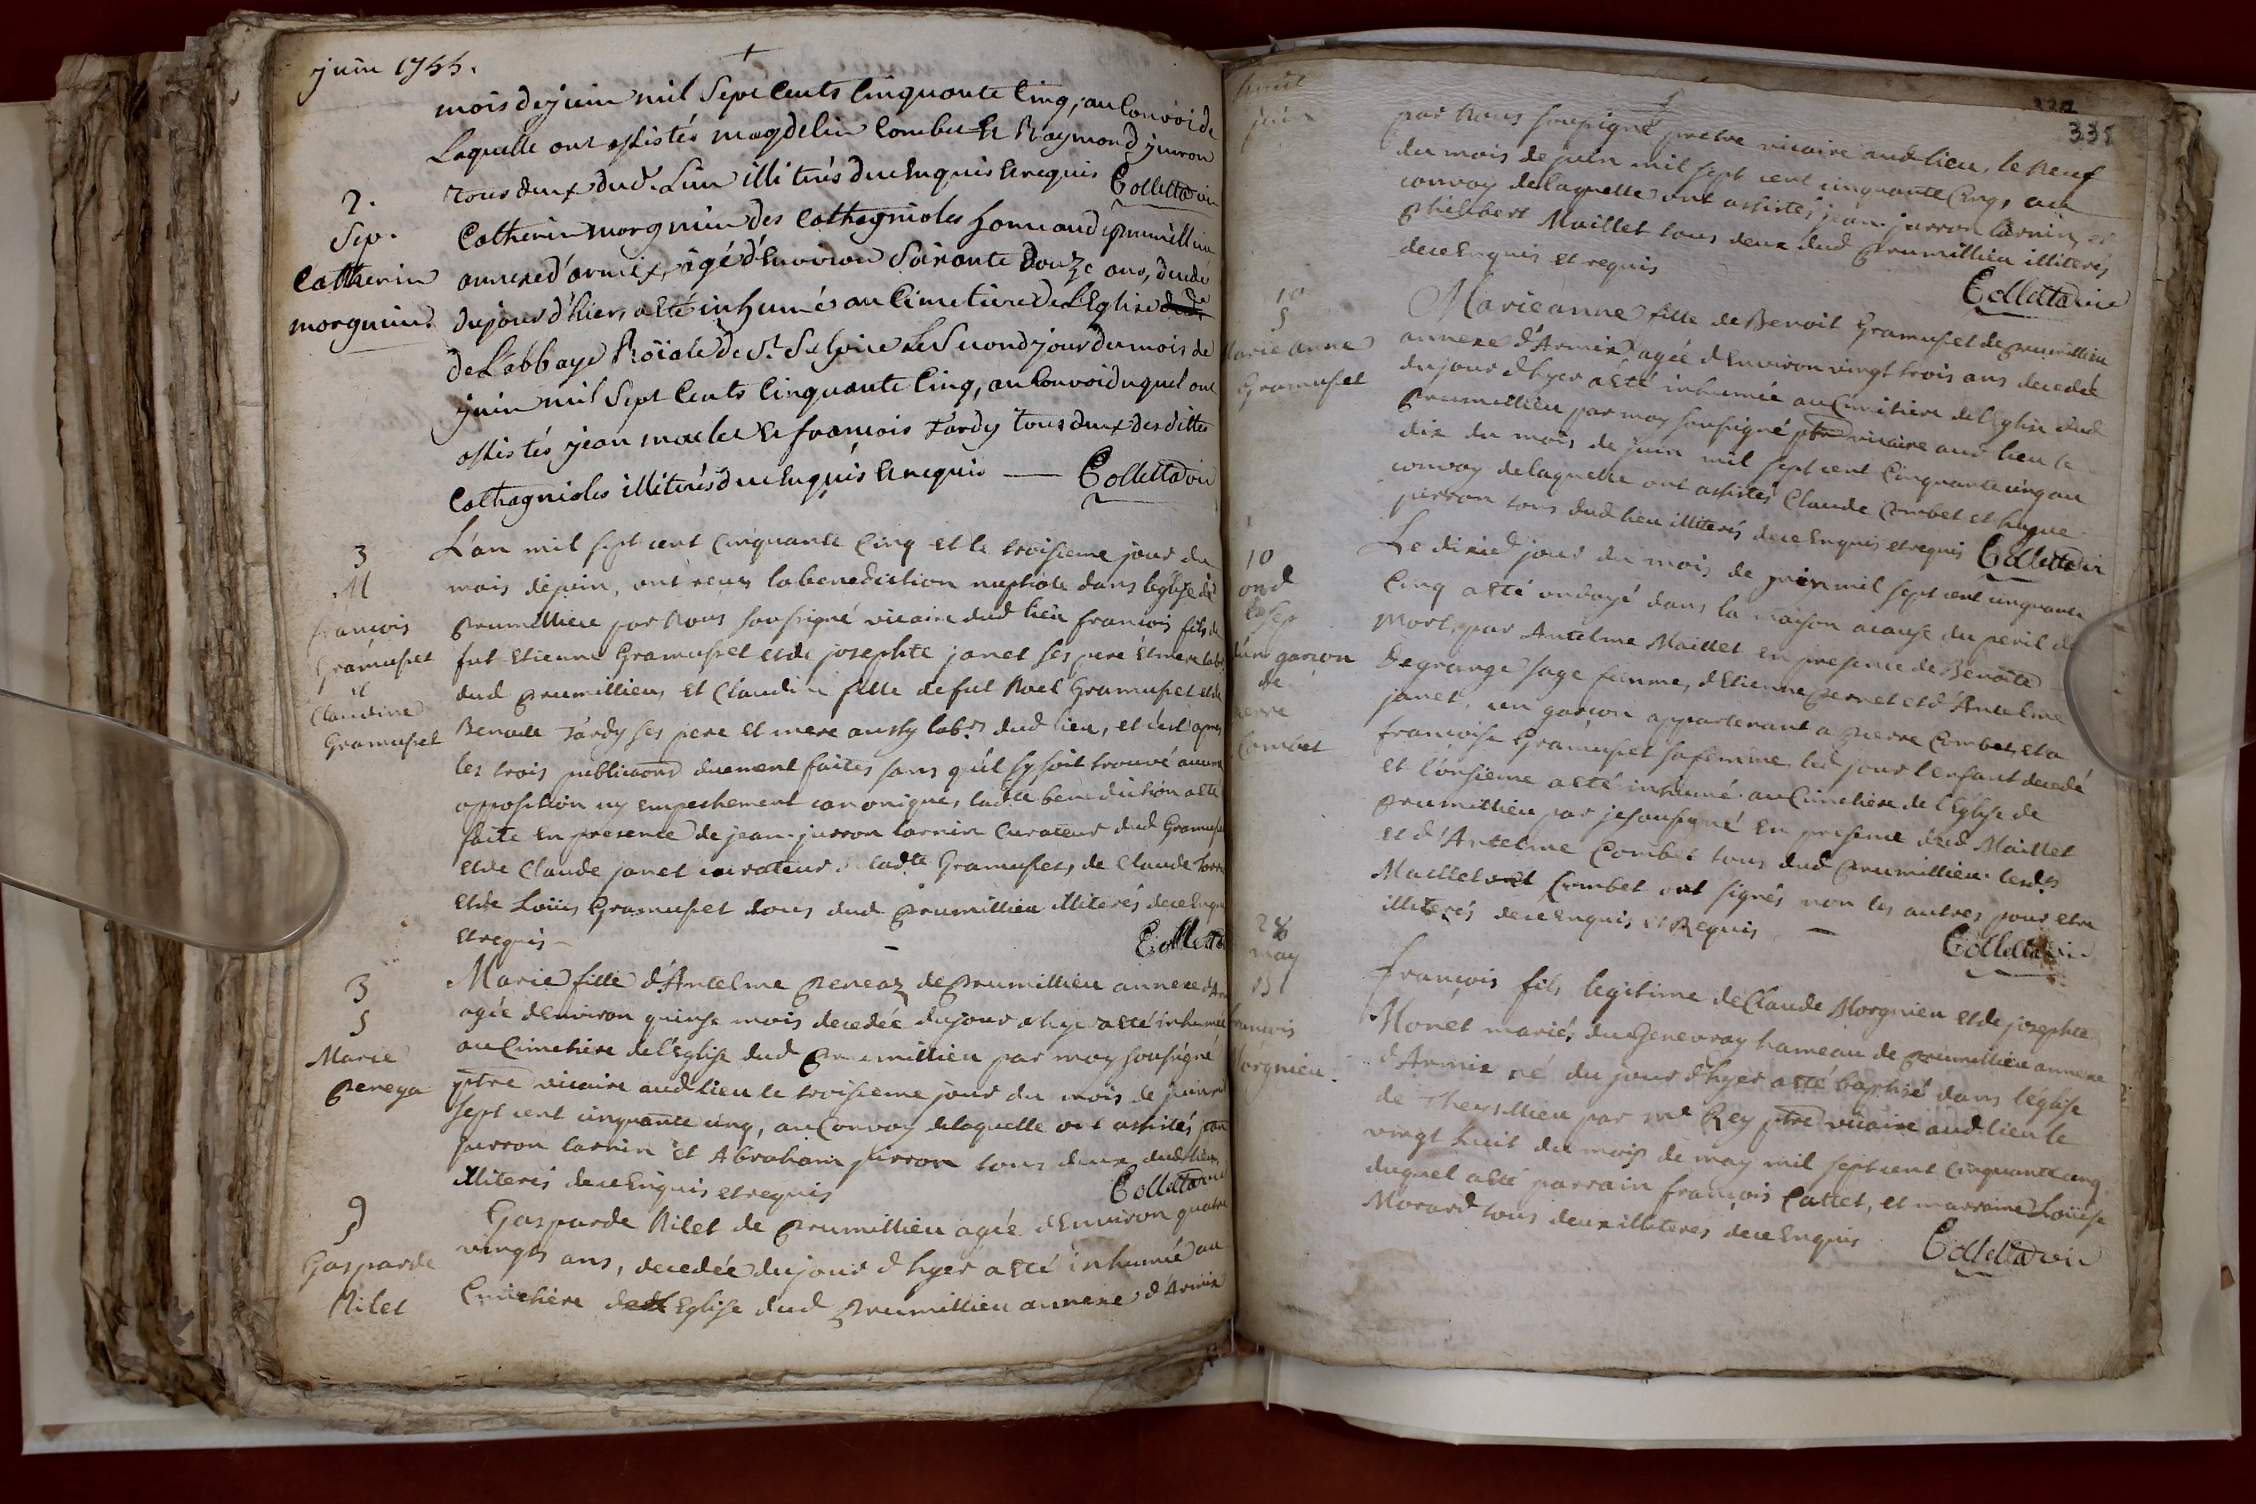 juin 1755.
mois de juin mil Sept Cents Cinquante Cinq, au Convoi de
Laquelle ont assistés magdelin Combet Et Raymond juron
tous deux dud. Lieu illitirés due Enquis Et requis Colletta vic
2.
Sep.
Catherin
morgnieu
Catherin morgnieu des Cathagnioles hameau de prumillieu
annexe d'armix, âgé d'Environ Soixante Douze ans, decedé
du jour d'hier, a Eté inhumé au Cimetiere de L'Eglise
de L'abbaye Roïale de St. Sulpice Le Second jour du mois de
juin mil Sept Cents Cinquante Cinq, au Convoi duquel ont
assistés jean maclet Et francois Tardy Tous deux des dittes
Cathagnioles illitirés due Enquis Et requis — Colletta vic
3
M
francois
Gramuset
et
Claudine
Gramuset
L'an mil sept cent Cinquante Cinq et le troisieme jour du
mois de juin, ont reçus la benediction nuptiale dans l'eglise de
prumillieu par Nous soussigné vicaire dud lieu francois fils de
fut Etienne Gramuset et de josephte janet ses pere et mere lab.
dud prumillieu, et Claudine fille de fut Noel Gramuset et de
Benoite Tardy ses pere et mere aussy lab.rs dud lieu, et c'est apres
les trois publications duement faites sans qu'il sy soit trouvé aucune
opposition ny empechement canonique, ladte benediction a Eté
faite En presence de jean jurron Carnin Curateur dud Gramuset
et de Claude janet curateur de ladte Gramuset, de Claude
et de Loüis Gramuset tous dud prumillieu illiterés de ce Enquis
et requis — Colletta
3
S
Marie
peneya
Marie fille d'Antelme peneaz de prumillieu annexe d'
agée d'Environ quinse mois decedée du jour d'hyer a Eté inhumée
au Cimetiere de l'Eglise dud prumillieu par moy soussigné
ptre vicaire aud lieu le troisieme jour du mois de juin
sept cent cinquante cinq, au Convoy de laquelle ont assistés jean
jurron Carnin et Abraham jurron tous deux dud lieu
illiterés de ce Enquis et requis Colletta vic
9
S
Gasparde
Rilet
Gasparde Rilet de prumillieu agée d'Environ quatre
vingts ans, decedée du jour d'hyer a Eté inhumée au
Cimetiere de l'Eglise dud prumillieu annexe d'Armix
juin
335
par Nous soussigné pretre vicaire aud lieu, le Neuf
du mois de juin mil sept cent cinquante Cinq, au
convoy de laquelle ont assistés jean jurron Carnin, et
philibert Maillet tous deux dud prumillieu illiterés
de ce Enquis et requis Colletta vic
10
S
Marie anne
Gramuset
Marie anne fille de Benoit Gramuset de prumillieu
annexe d'Armix, agée d'Environ vingt trois ans decedée
du jour d'hyer a Eté inhumée au Cimetiere de l'Eglise dud
prumillieu par moy soussigné ptre vicaire aud lieu le
dix du mois de juin mil sept cent Cinquante cinq au
convoy de laquelle ont assistés Claude Combet et hugue
jurron tous dud lieu illiterés de ce Enquis et requis Colletta vic
10
ond
et sep
d'un garcon
de
pierre
Combet
Le dixie jour du mois de juin mil sept cent cinquante
Cinq a Eté ondoyé dans la maison a cause du peril de
mort, par Antelme Maillet en presence de Benoite
Degrange sage femme, d'Etienne pernet et d'Antelme
janet, un garcon appartenant a pierre Combet, et a
francoise Gramuset sa femme, led jour l'enfant decedé
et l'onsieme a eté inhumé au Cimetiere de l'Eglise de
prumillieu par je soussigné En presence dud Maillet
et d'Antelme Combet tous dud prumillieu. lesds
Maillet et Combet ont signés non les autres pour etre
illiterés de ce Enquis et Requis — Colletta vic
28
may
B
francois
Morgnieu
francois fils legitime de Claude Morgnieu et de josephte
Monet mariés, du Genevray hameau de prumillieu annexe
d'Armix né du jour d'hyer a eté baptisé dans l'eglise
de Theysillieu par Me Rey ptre vicaire aud lieu le
vingt huit du mois de may mil sept cent Cinquante cinq
duquel a eté parrain francois Cattet, et marraine Loüise
Morard tous deux illiteres de ce Enquis Colletta vic